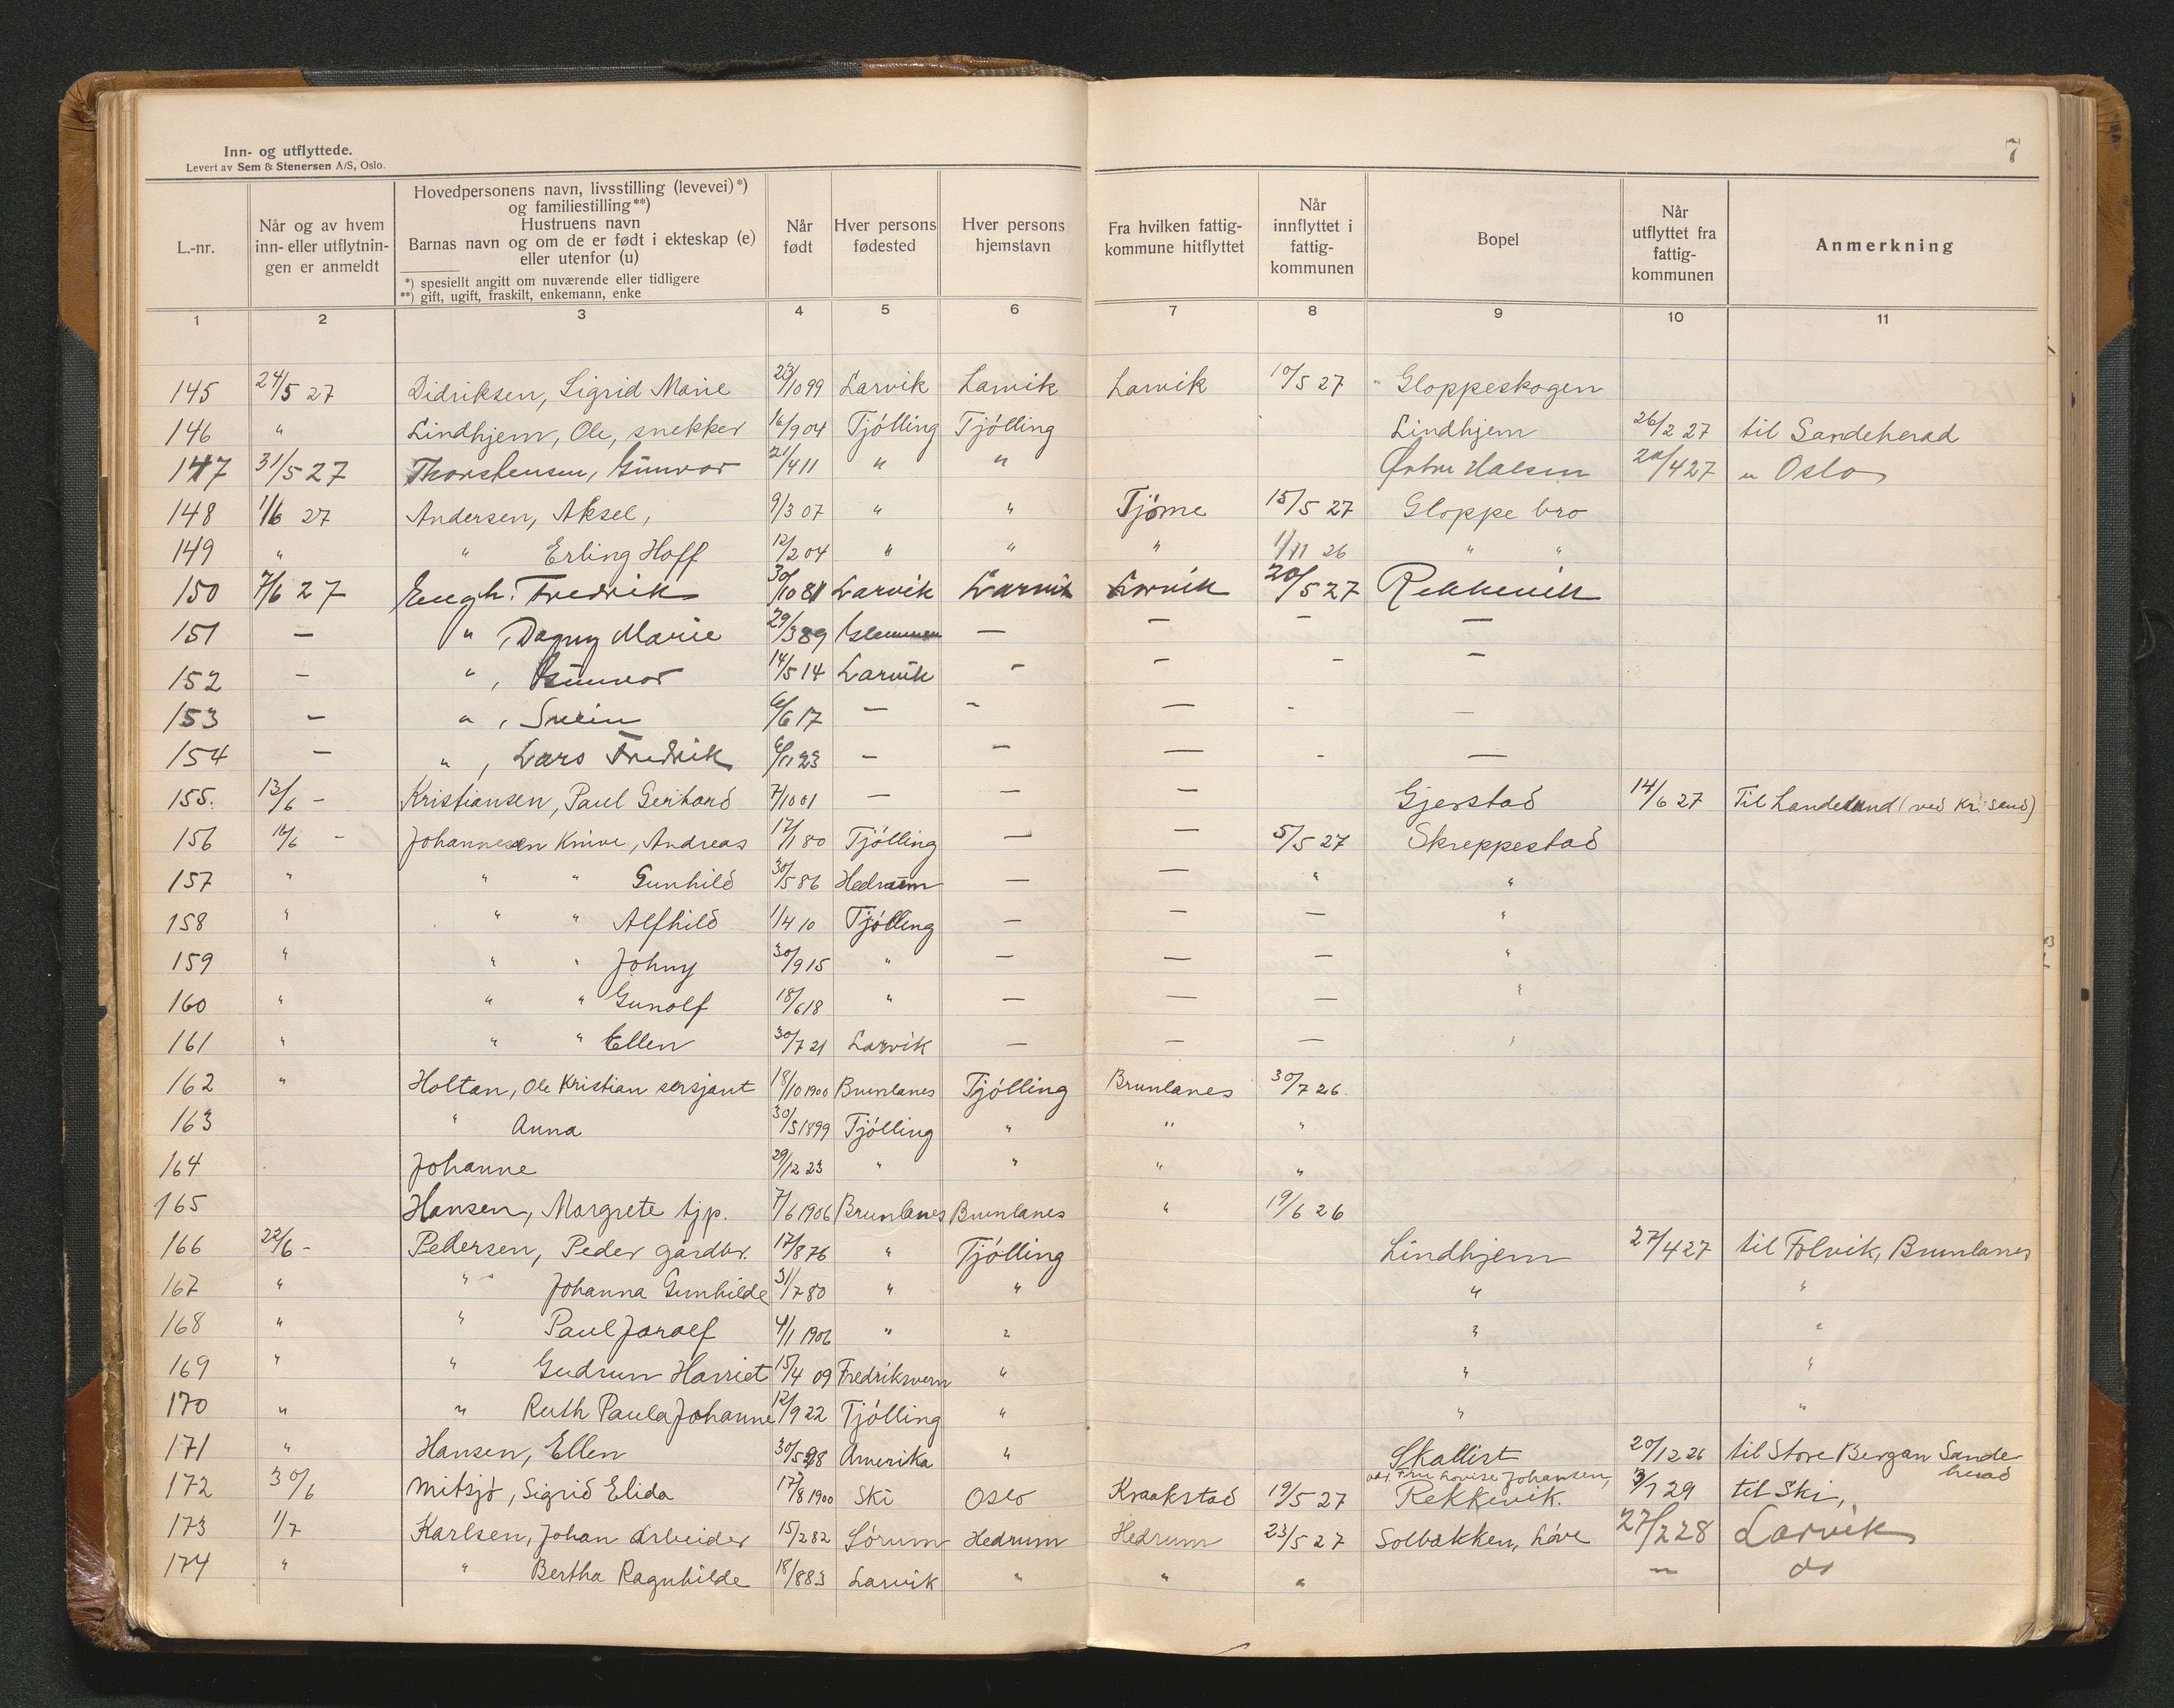 Inn- og utflyttede.
Levert av Sem & Stenersen A/S, Oslo.
7
L.-nr. | Når og av hvem inn- eller utflytningen er anmeldt | Hovedpersonens navn, livsstilling (levevei)*) og familiestilling**) Hustruens navn Barnas navn og om de er født i ekteskap (e) eller utenfor (u) *) spesiellt angitt om nuværende eller tidligere **) gift, ugift, fraskilt, enkemann, enke | Når født | Hver persons fødested | Hver persons hjemstavn | Fra hvilken fattigkommune hitflyttet | Når innflyttet i fattigkommunen | Bopel | Når utflyttet fra fattigkommunen | Anmerkning
1 2 3 4 5 6 7 8 9 10 11
145 24/5 27 Didriksen, Sigrid Marie 23/10 99 Larvik Larvik Larvik 10/5 27 Gloppeskogen
146 " Lindhjem, Ole, snekker 16/9 04 Tjölling Tjölling Lindhjem 26/2 27 til Sandeherad
147 31/5 27 Thorstensen, Gunvor 21/4 11 " " Østre Halsen 20/4 27 " Oslo
148 1/6 27 Andersen, Aksel, 9/3 07 " " Tjöme 15/5 27 Gloppe bro
149 " " Erling Hoff 12/2 04 " " " 1/11 26 " "
150 7/6 27 Engh. Fredrik 30/10 81 Larvik Larvik Larvik 20/5 27 Rekkevik
151 — " , Dagny Marie 29/3 89 Glemmen — — — —
152 — " , Gunvor 14/5 14 Larvik — — — —
153 — " , Svein 6/6 17 — — — — —
154 — " , Lars Fredrik 6/11 23 — — — — —
155. 13/6 — Kristiansen, Paul Gerhard 7/10 01 — — — Gjerstad 14/6 27 Til Landeland (ved Kr. sand)
156 14/6 — Johannesen Knive, Andreas 12/1 80 Tjölling — — 5/5 27 Skreppestad
157 " " " Gunhild 30/5 86 Hedrum — — " "
158 " " " Alfhild 1/4 10 Tjölling — — — "
159 " " " Johny 30/9 15 " — — — "
160 " " " Gunolf 18/6 18 " — — — "
161 " " " Ellen 30/7 21 Larvik — — — "
162 " Holtan, Ole Kristian sersjant 18/10 1900 Brunlanes Tjölling Brunlanes 30/7 26.
163 " Anna 30/5 1899 Tjölling " " "
164 Johanne 29/12 23 " " " "
165 Hansen, Margrete tjp. 7/6 1906 Brunlanes Brunlanes " 19/6 26
166 22/6 - Pedersen, Peder gårdbr. 17/8 76 " Tjölling Lindhjem 27/4 27 til Folvik, Brunlanes
167 " " Johanna Gunhilde 31/7 80 " " " "
168 " " Paul Jorolf 4/1 1906 " " " "
169 " " Gudrun Harriet 15/4 09 Fredriksvern " " "
170 " " Ruth Paula Johanne 12/9 22 Tjölling " " "
171 " Hansen, Ellen 30/5 98 Amerika " Skallist 20/12 26 til Store Bergan Sandeherad
172 30/6 Mitsjö, Sigrid Elida 17/8 1900 Ski Oslo Kraakstad 19/5 27 adr. Fru Lovise Johansen, Rekkevik. 3/1 29 til Ski,
173 1/7 Karlsen, Johan arbeider 15/2 82 Sörum Hedrum Hedrum 23/5 27 Solbakken, Löve 27/2 28 Larvik
174 " " Bertha Ragnhilde 18/8 83 Larvik " " " — do